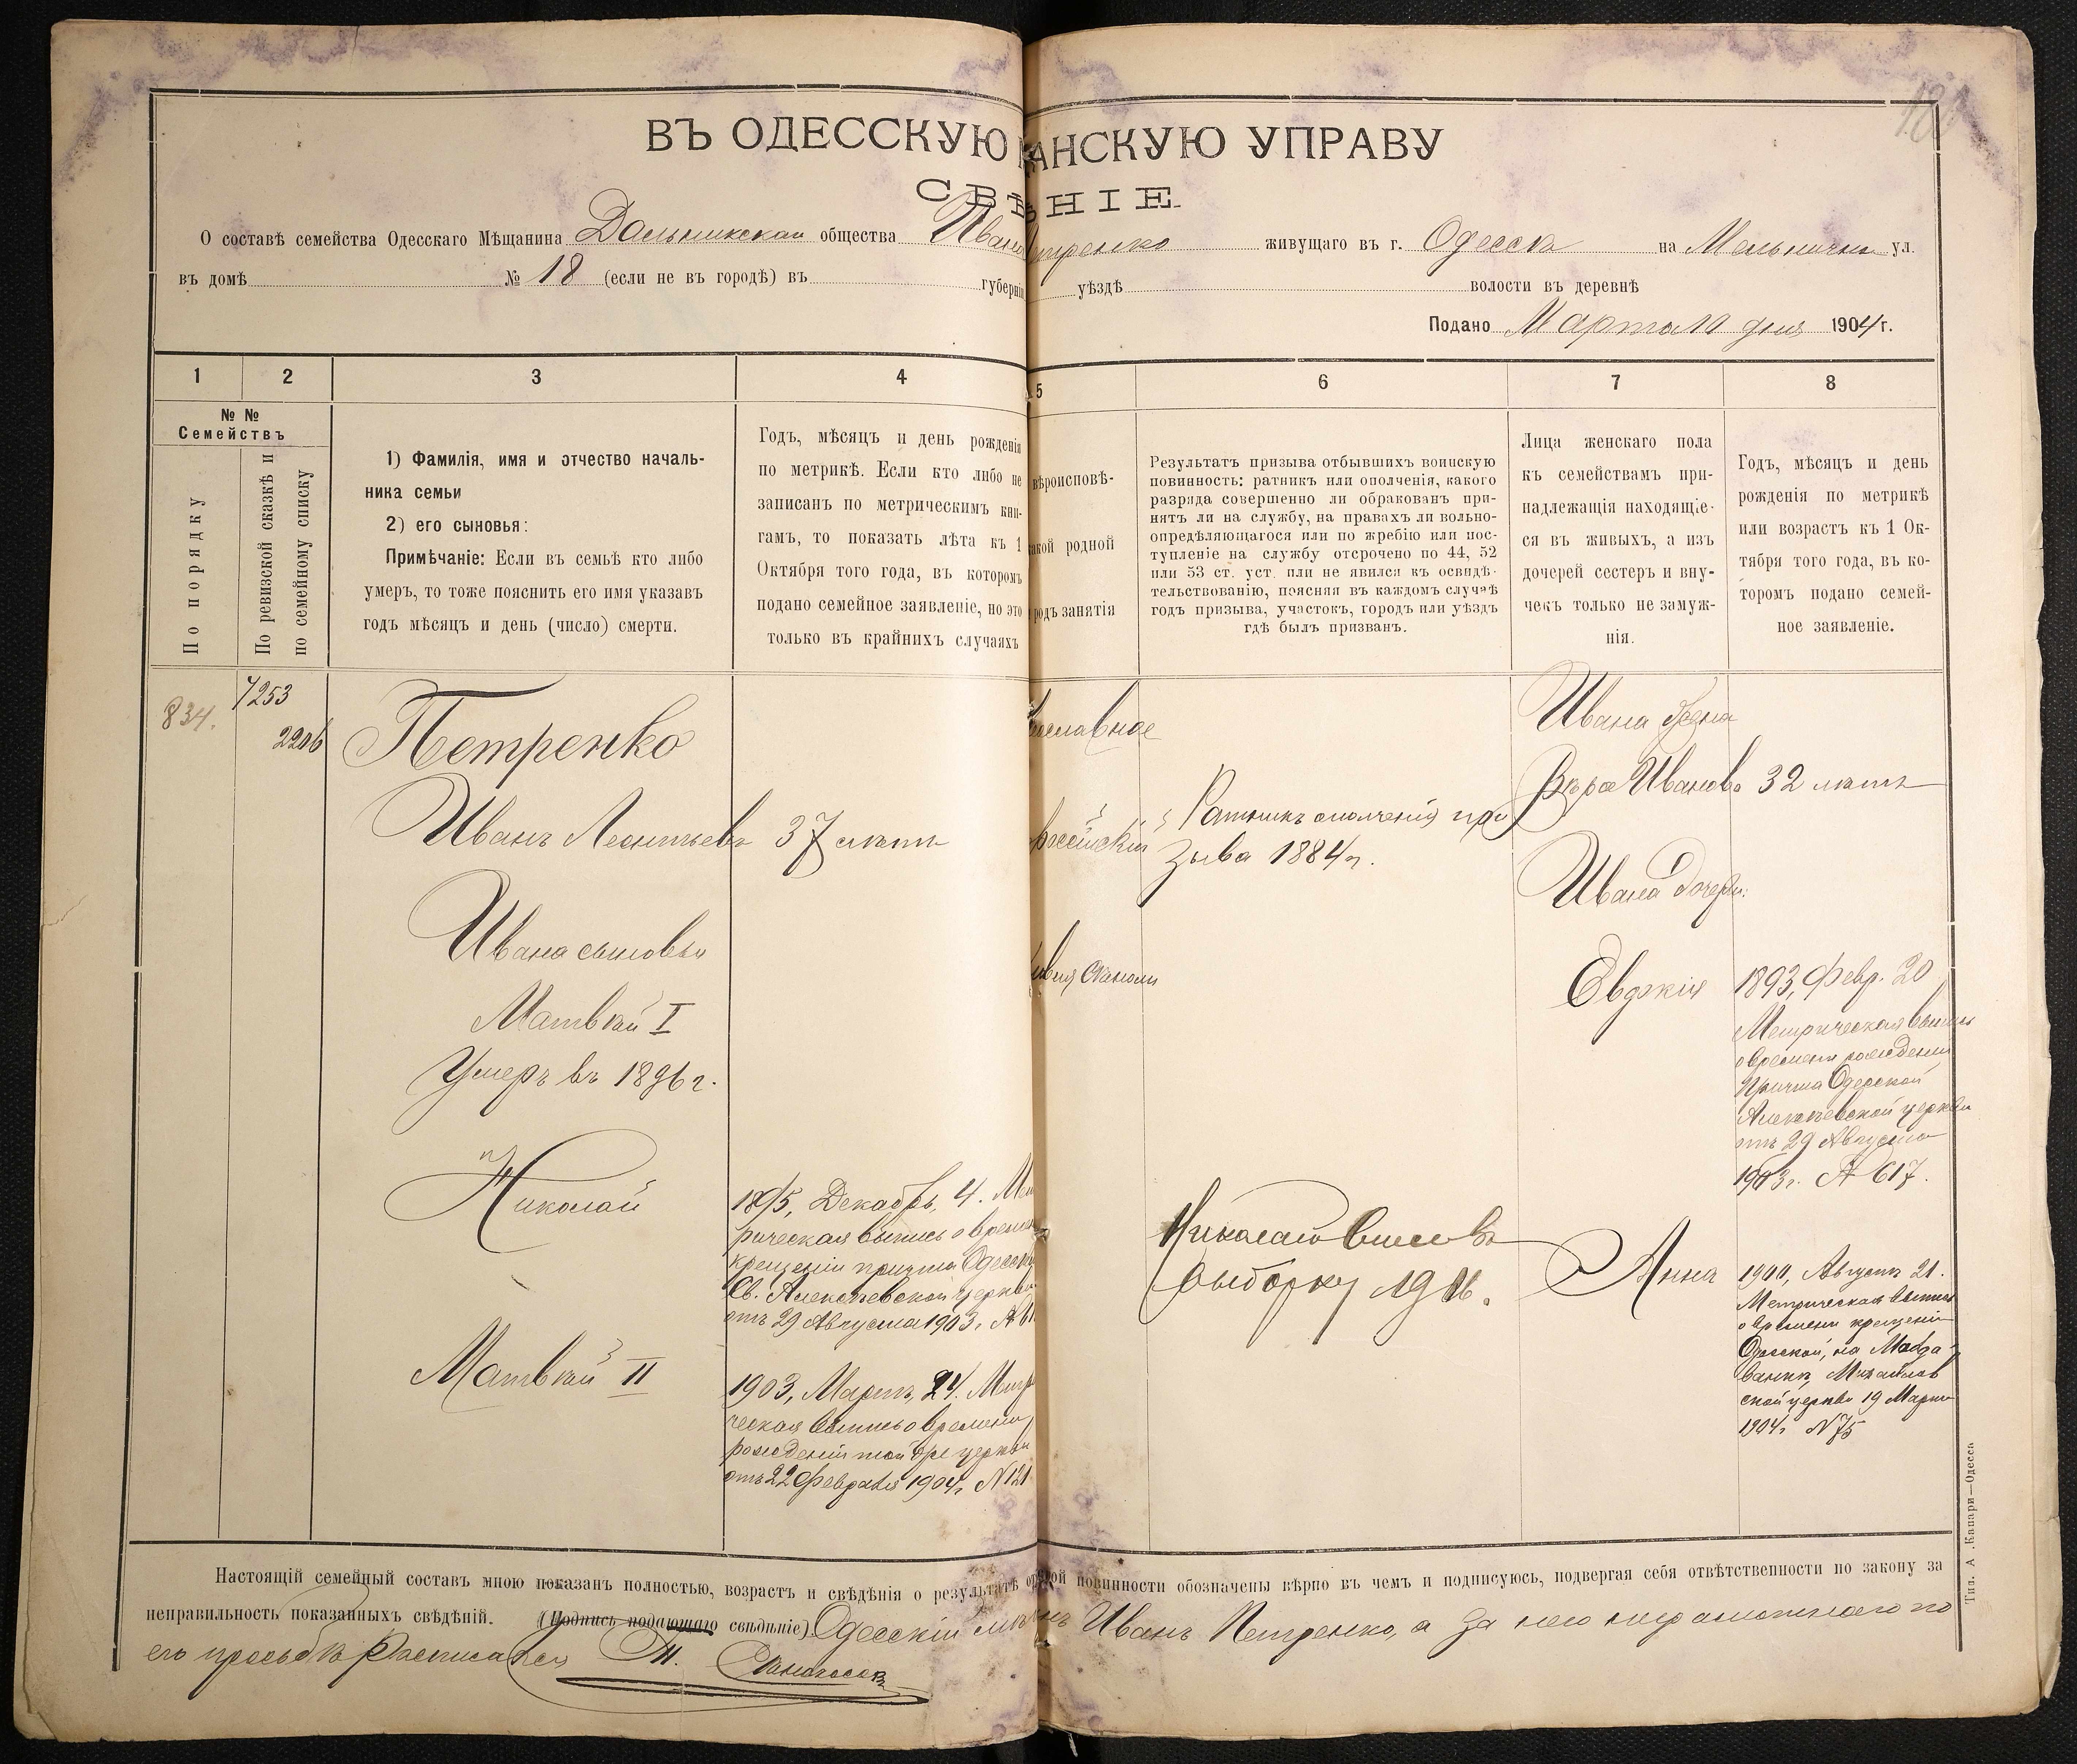 ВЪ ОДЕССКУЮ АНСКУЮ УПРАВУ
СВѢНІЕ
О составѣ семейства Одесскаго Мѣщанина Дальникскаго общества Ивана Петренко живущаго въ г. Одесса на Мельничн ул.
въ домѣ № 18 (если не въ городѣ) въ губерніи уѣздѣ волости въ деревнѣ
Подано Марта 10 дня 1904 г.
1 2 3 4 5 6 7 8
№ №
Семействъ
По порядку
По ревизской сказкѣ и
по семейному списку
1) Фамилія, имя и отчество началь-
ника семьи
2) его сыновья:
Примѣчаніе: Если въ семьѣ кто либо
умеръ, то тоже пояснить его имя указавъ
годъ мѣсяцъ и день (число) смерти.
Годъ, мѣсяцъ и день рожденія
по метрикѣ. Если кто либо не
записанъ по метрическимъ кни-
гамъ, то показать лѣта къ 1
Октября того года, въ которомъ
подано семейное заявленіе, но это
только въ крайнихъ случаяхъ
вѣроисповѣ-
акой родной
родъ занятія
Результатъ призыва отбывшихъ воинскую
повинность: ратникъ или ополченія, какого
разряда совершенно ли обракованъ при-
нятъ ли на службу, на правахъ ли вольно-
опредѣляющагося или по жребію или пос-
тупленіе на службу отсрочено по 44, 52
или 53 ст. уст. или не явился къ освидѣ-
тельствованію, поясняя въ каждомъ случаѣ
годъ призыва, участокъ, городъ или уѣздъ
гдѣ былъ призванъ.
Лица женскаго пола
къ семействамъ при-
надлежащія находящіе-
ся въ живыхъ, а изъ
дочерей сестеръ и вну-
чекъ только не замуж-
нія.
Годъ, мѣсяцъ и день
рожденія по метрикѣ
или возрастъ къ 1 Ок-
тября того года, въ ко-
торомъ подано семей-
ное заявленіе.
834.
7253
2206
Петренко
Иванъ Леонтьевъ
37 лѣтъ
Ивана сыновья
Матвѣй I
Умеръ въ 1896 г.
Николай
1895, Декабрь, 4. Мет
рическая выпись о времени
крещенія причта Одесской
Св. Алексѣевской церкви
отъ 29 Августа 1903 г.
Матвѣй II
1903, Мартъ, 24. Метр
ческая выпись о времени
рожденія той же церкви
отъ 22 Февраля 1904 г. № 121
ославное
россійскій
Ратникъ ополченія при
зыва 1884 г.
Николай внесенъ въ
выборку 1916.
Ивана жена
Вѣра Иванова 32 лѣтъ
Ивана дочери:
Евдокія
1893, Февр. 20
Метрическая выпись
о времени рожденія
Причта Одесской
Алексѣевской церкви
отъ 29 Августа
1903 г. № 617.
Анна
1900, Августъ 21.
Метрическая выпись
о времени крещенія
Одесской, на Молда-
ванкѣ, Михайлов
ской церкви 19 Марта
1904 г. № 75
Настоящій семейный составъ мною показанъ полностью, возрастъ и свѣдѣнія о результатѣ ой повинности обозначены вѣрно въ чемъ и подписуюсь, подвергая себя отвѣтственности по закону за
неправильность показанныхъ свѣдѣній. (Подпись подающаго свѣдѣніе). Одесскій мѣ нъ Иванъ Петренко, а за него неграмотнаго по
его просьбѣ расписался
Тип. А. Капари—Одесса